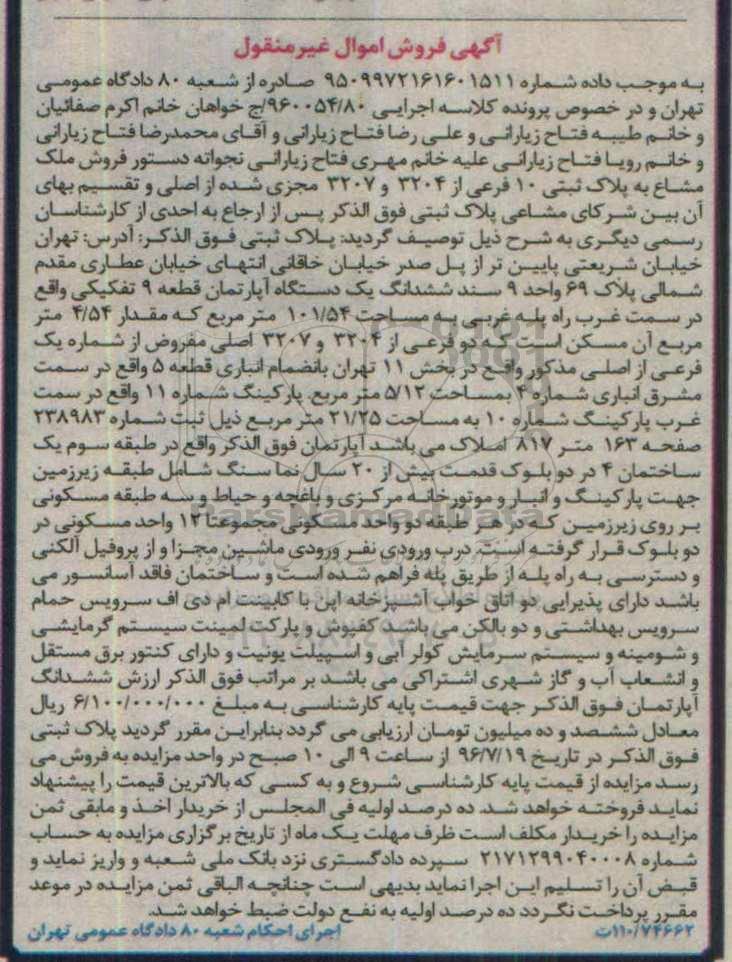 آگهی فروش اموال غیرمنقول
به موجب داده شماره ۹۵۰۹۹۷۲۱۶۱۶۰۱۵۱۱ صادره از شعبه ۸۰ دادگاه عمومی
تهران و در خصوص پرونده کلاسه اجرایی ۹۶۰۰۵۴/۸۰/ج خواهان خانم اکرم صفائیان
و خانم طیبه فتاح زیارانی و علی رضا فتاح زیارانی و آقای محمدرضا فتاح زیارانی
و خانم رویا فتاح زیارانی علیه خانم مهری فتاح زیارانی نجواته دستور فروش ملک
مشاع به پلاک ثبتی ۱۰ فرعی از ۳۲۰۴ و ۳۲۰۷ مجزی شده از اصلی و تقسیم بهای
آن بین شرکای مشاعی پلاک ثبتی فوق الذکر پس از ارجاع به احدی از کارشناسان
رسمی دیگری به شرح ذیل توصیف گردید: پلاک ثبتی فوق الذکر: آدرس: تهران
خیابان شریعتی پایین تر از پل صدر خیابان خاقانی انتهای خیابان عطاری مقدم
شمالی پلاک ۶۹ واحد ۹ سند ششدانگ یک دستگاه آپارتمان قطعه ۹ تفکیکی واقع
در سمت غرب راه پله غربی به مساحت ۱۰۱/۵۴ متر مربع که مقدار ۴/۵۴ متر
مربع آن مسکن است که دو فرعی از ۳۲۰۴ و ۳۲۰۷ اصلی مفروض از شماره یک
فرعی از اصلی مذکور واقع در بخش ۱۱ تهران بانضمام انباری قطعه ۵ واقع در سمت
مشرق انباری شماره ۴ بمساحت ۵/۱۲ متر مربع. پارکینگ شماره ۱۱ واقع در سمت
غرب پارکینگ شماره ۱۰ به مساحت ۲۱/۲۵ متر مربع ذیل ثبت شماره ۲۳۸۹۸۳
صفحه ۱۶۳ متر ۸۱۷ املاک می باشد آپارتمان فوق الذکر واقع در طبقه سوم یک
ساختمان ۴ در دو بلوک قدمت بیش از ۲۰ سال نما سنگ شامل طبقه زیرزمین
جهت پارکینگ و انبار و موتورخانه مرکزی و باغچه و حیاط و سه طبقه مسکونی
بر روی زیرزمین که در هر طبقه دو واحد مسکونی مجموعتا ۱۲ واحد مسکونی در
دو بلوک قرار گرفته است. درب ورودی نفر ورودی ماشین مجزا و از پروفیل آلکنی
و دسترسی به راه پله از طریق پله فراهم شده است و ساختمان فاقد آسانسور می
باشد دارای پذیرایی دو اتاق خواب آشپزخانه اپن با کابینت ام دی اف سرویس حمام
سرویس بهداشتی و دو بالکن می باشد. کفپوش و پارکت لمینت سیستم گرمایشی
و شومینه و سیستم سرمایش کولر آبی و اسپیلت یونیت و دارای کنتور برق مستقل
و انشعاب آب و گاز شهری اشتراکی می باشد بر مراتب فوق الذکر ارزش ششدانگ
آپارتمان فوق الذکر جهت قیمت پایه کارشناسی به مبلغ ۶/۱۰۰/۰۰۰/۰۰۰ ریال
معادل ششصد و ده میلیون تومان ارزیابی می گردد بنابراین مقرر گردید پلاک ثبتی
فوق الذکر در تاریخ ۹۶/۷/۱۹ از ساعت ۹ الی ۱۰ صبح در واحد مزایده به فروش می
رسد مزایده از قیمت پایه کارشناسی شروع و به کسی که بالاترین قیمت را پیشنهاد
نماید فروخته خواهد شد. ده درصد اولیه فی المجلس از خریدار اخذ و مابقی ثمن
مزایده را خریدار مکلف است ظرف مهلت یک ماه از تاریخ برگزاری مزایده به حساب
شماره ۲۱۷۱۲۹۹۰۴۰۰۰۸ سپرده دادگستری نزد بانک ملی شعبه و واریز نماید و
قبض آن را تسلیم این اجرا نماید بدیهی است چنانچه الباقی ثمن مزایده در موعد
مقرر پرداخت نگردد ده درصد اولیه به نفع دولت ضبط خواهد شد.
۱۱۰/۷۴۶۶۲ت اجرای احکام شعبه ۸۰ دادگاه عمومی تهران
ParsNamadData